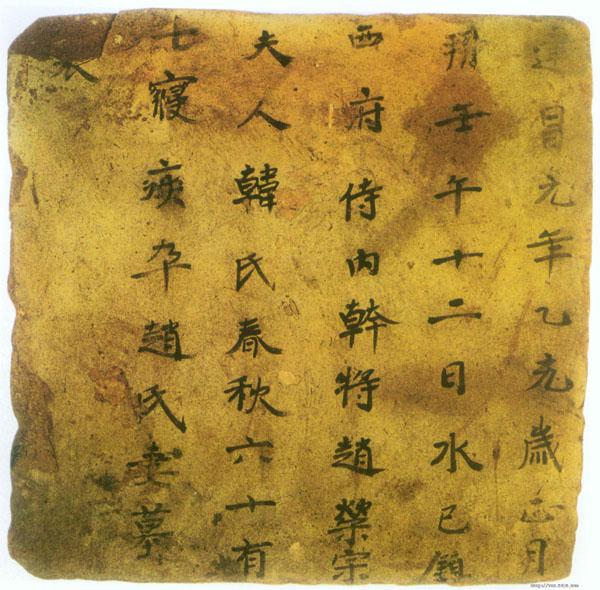 建昌元年乙亥歲正月
朔壬午十二日水巳鎮
西府侍内幹將趙榮宗
夫人韓氏春秋六十有
七寢疾卒趙氏妻墓
表